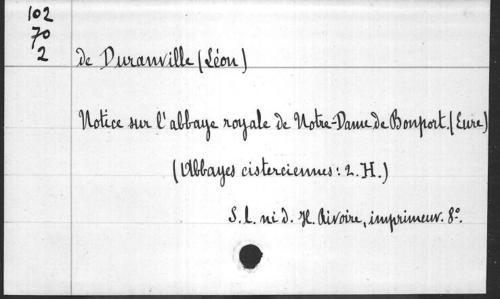 102
70
2
de Duranville (Léon)
Notice sur l'abbaye royale de Notre-Dame de Bonport. (Eure)
(Abbayes cisterciennes: 2. H.)
S. l. ni d. H. Rivoire, imprimeur. 8º.